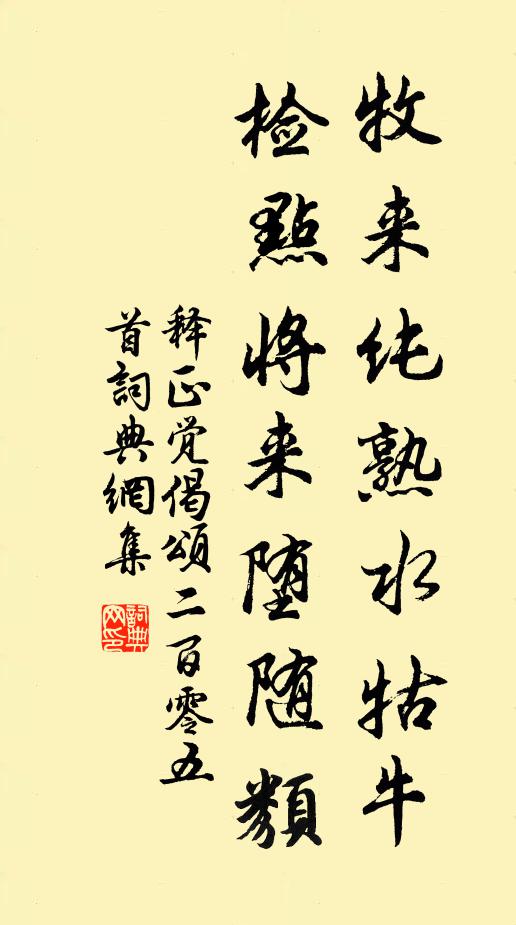 牧来纯熟水牯牛
检點将来堕随類
释正觉偈頌二百零五
首詞典網集
詞典
网印